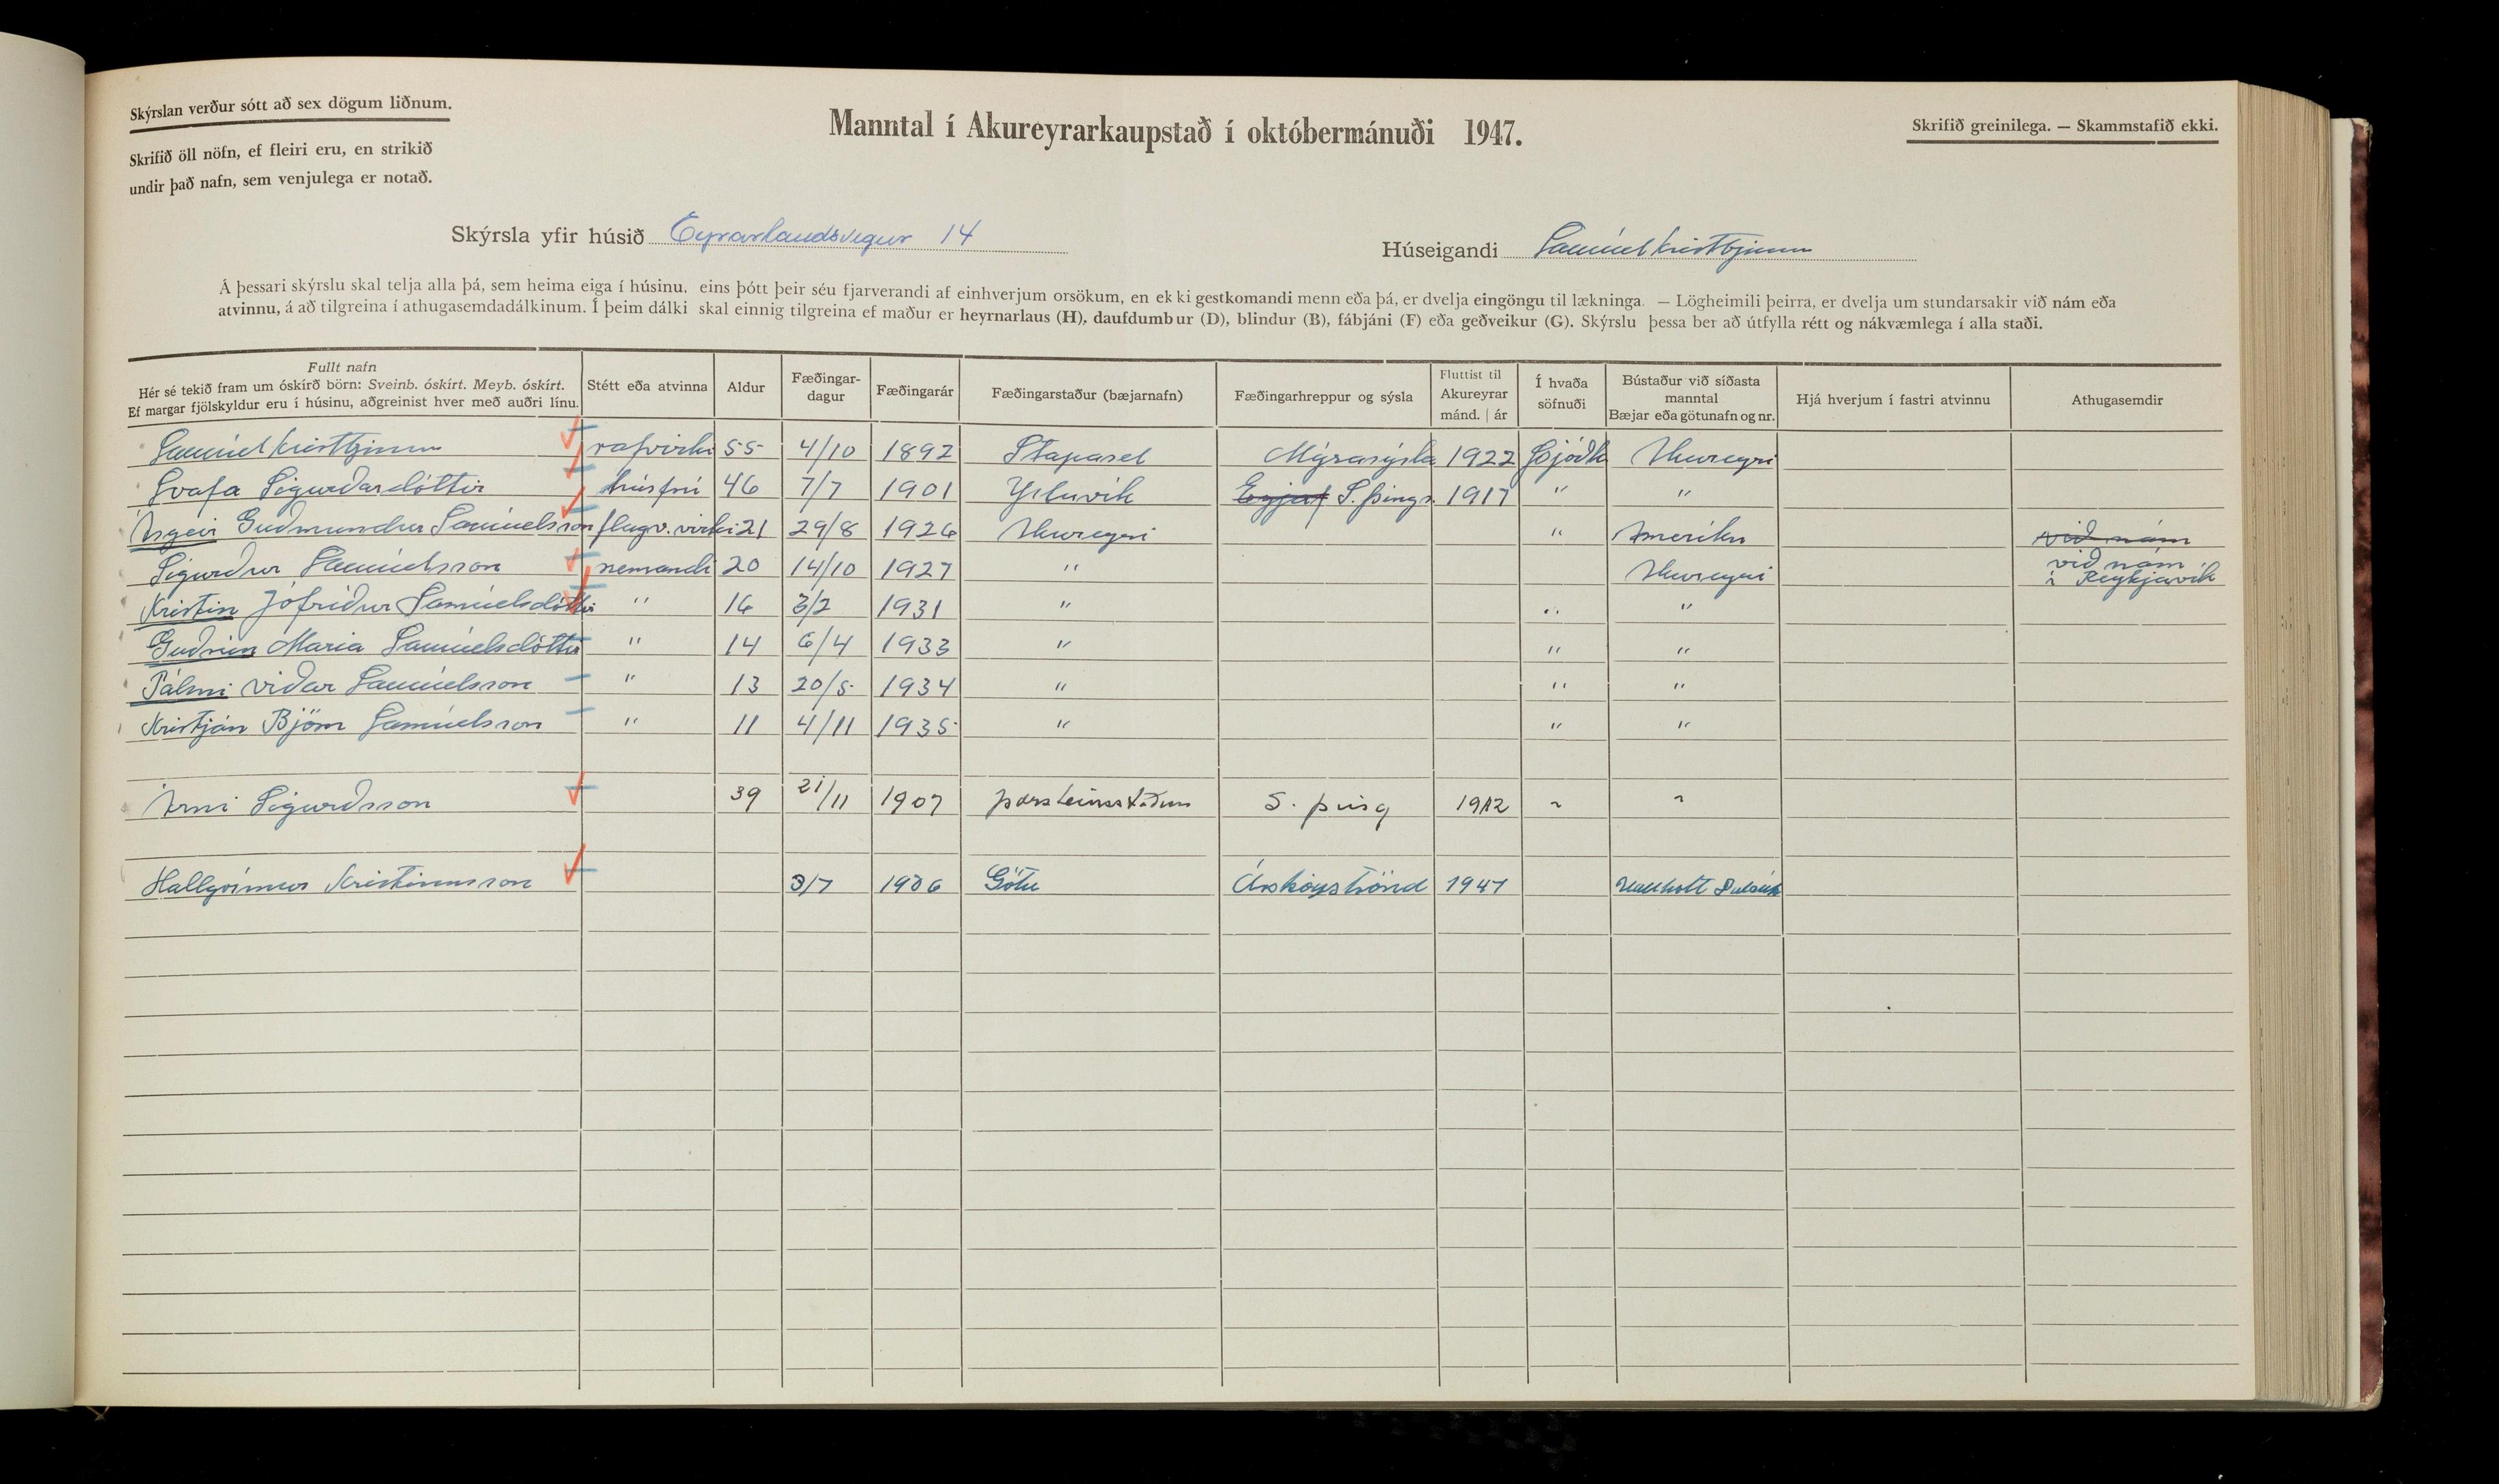 Skýrslan verður sótt að sex dögum liðnum.
Skrifið öll nöfn, ef fleiri eru, en strikið
undir það nafn, sem venjulega er notað.
Manntal í Akureyrarkaupstað í októbermánuði 1947.
Skrifið greinilega. — Skammstafið ekki.
Skýrsla yfir húsið Eyrarlandsvegur 14
Húseigandi Samúel Kristbjarnar
Á þessari skýrslu skal telja alla þá, sem heima eiga í húsinu, eins þótt þeir séu fjarverandi af einhverjum orsökum, en ekki gestkomandi menn eða þá, er dvelja eingöngu til lækninga. — Lögheimili þeirra, er dvelja um stundarsakir við nám eða
atvinnu, á að tilgreina í athugasemdadálkinum. Í þeim dálki skal einnig tilgreina ef maður er heyrnarlaus (H), daufdumbur (D), blindur (B), fábjáni (F) eða geðveikur (G). Skýrslu þessa ber að útfylla rétt og nákvæmlega í alla staði.
Fullt nafn
Hér sé tekið fram um óskírð börn: Sveinb. óskírt. Meyb. óskírt.
Ef margar fjölskyldur eru í húsinu, aðgreinist hver með auðri línu.
Stétt eða atvinna
Aldur
Fæðingar-
dagur
Fæðingarár
Fæðingarstaður (bæjarnafn)
Fæðingarhreppur og sýsla
Fluttist til
Akureyrar
mánd. | ár
Í hvaða
söfnuði
Bústaður við síðasta
manntal
Bæjar eða götunafn og nr.
Hjá hverjum í fastri atvinnu
Athugasemdir
Samúel rafvirki 55 4/10 1892 Stapasel Mýrasýsla 1922 Þjóðk Akureyri
Svafa Sigurðardóttir húsfrú 46 7/7 1901 Eyjaf S. Þings. 1917 " "
Ásgeir Guðmundur Samúelsson flugv. virki 21 29/8 1926 Akureyri " Ameríku við nám
Sigurður Samúelsson nemandi 20 14/10 1927 " Akureyri við nám í Reykjavík
Kristín Jófríður Samúelsdóttir " 16 3/2 1931 " " "
Guðrún María Samúelsdóttir " 14 6/4 1933 " " "
Pálmi Viðar Samúelsson " 13 20/5 1934 " " "
Kristján Björn Samúelsson " 11 4/11 1935 " " "
Árni Sigurðsson 39 21/11 1907 Þorsteinsstöðum S. Þing 1912 " "
Hallgrímur Kristinnsson 3/7 1906 Götu Árskógsströnd 1947